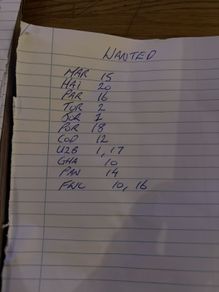 WANTED
MAR 15
HAI 20
PAR 16
TUR 2
JOR 1
POR 18
COD 12
UZB 1, 17
GHA 10
PAN 14
FWC 10, 16